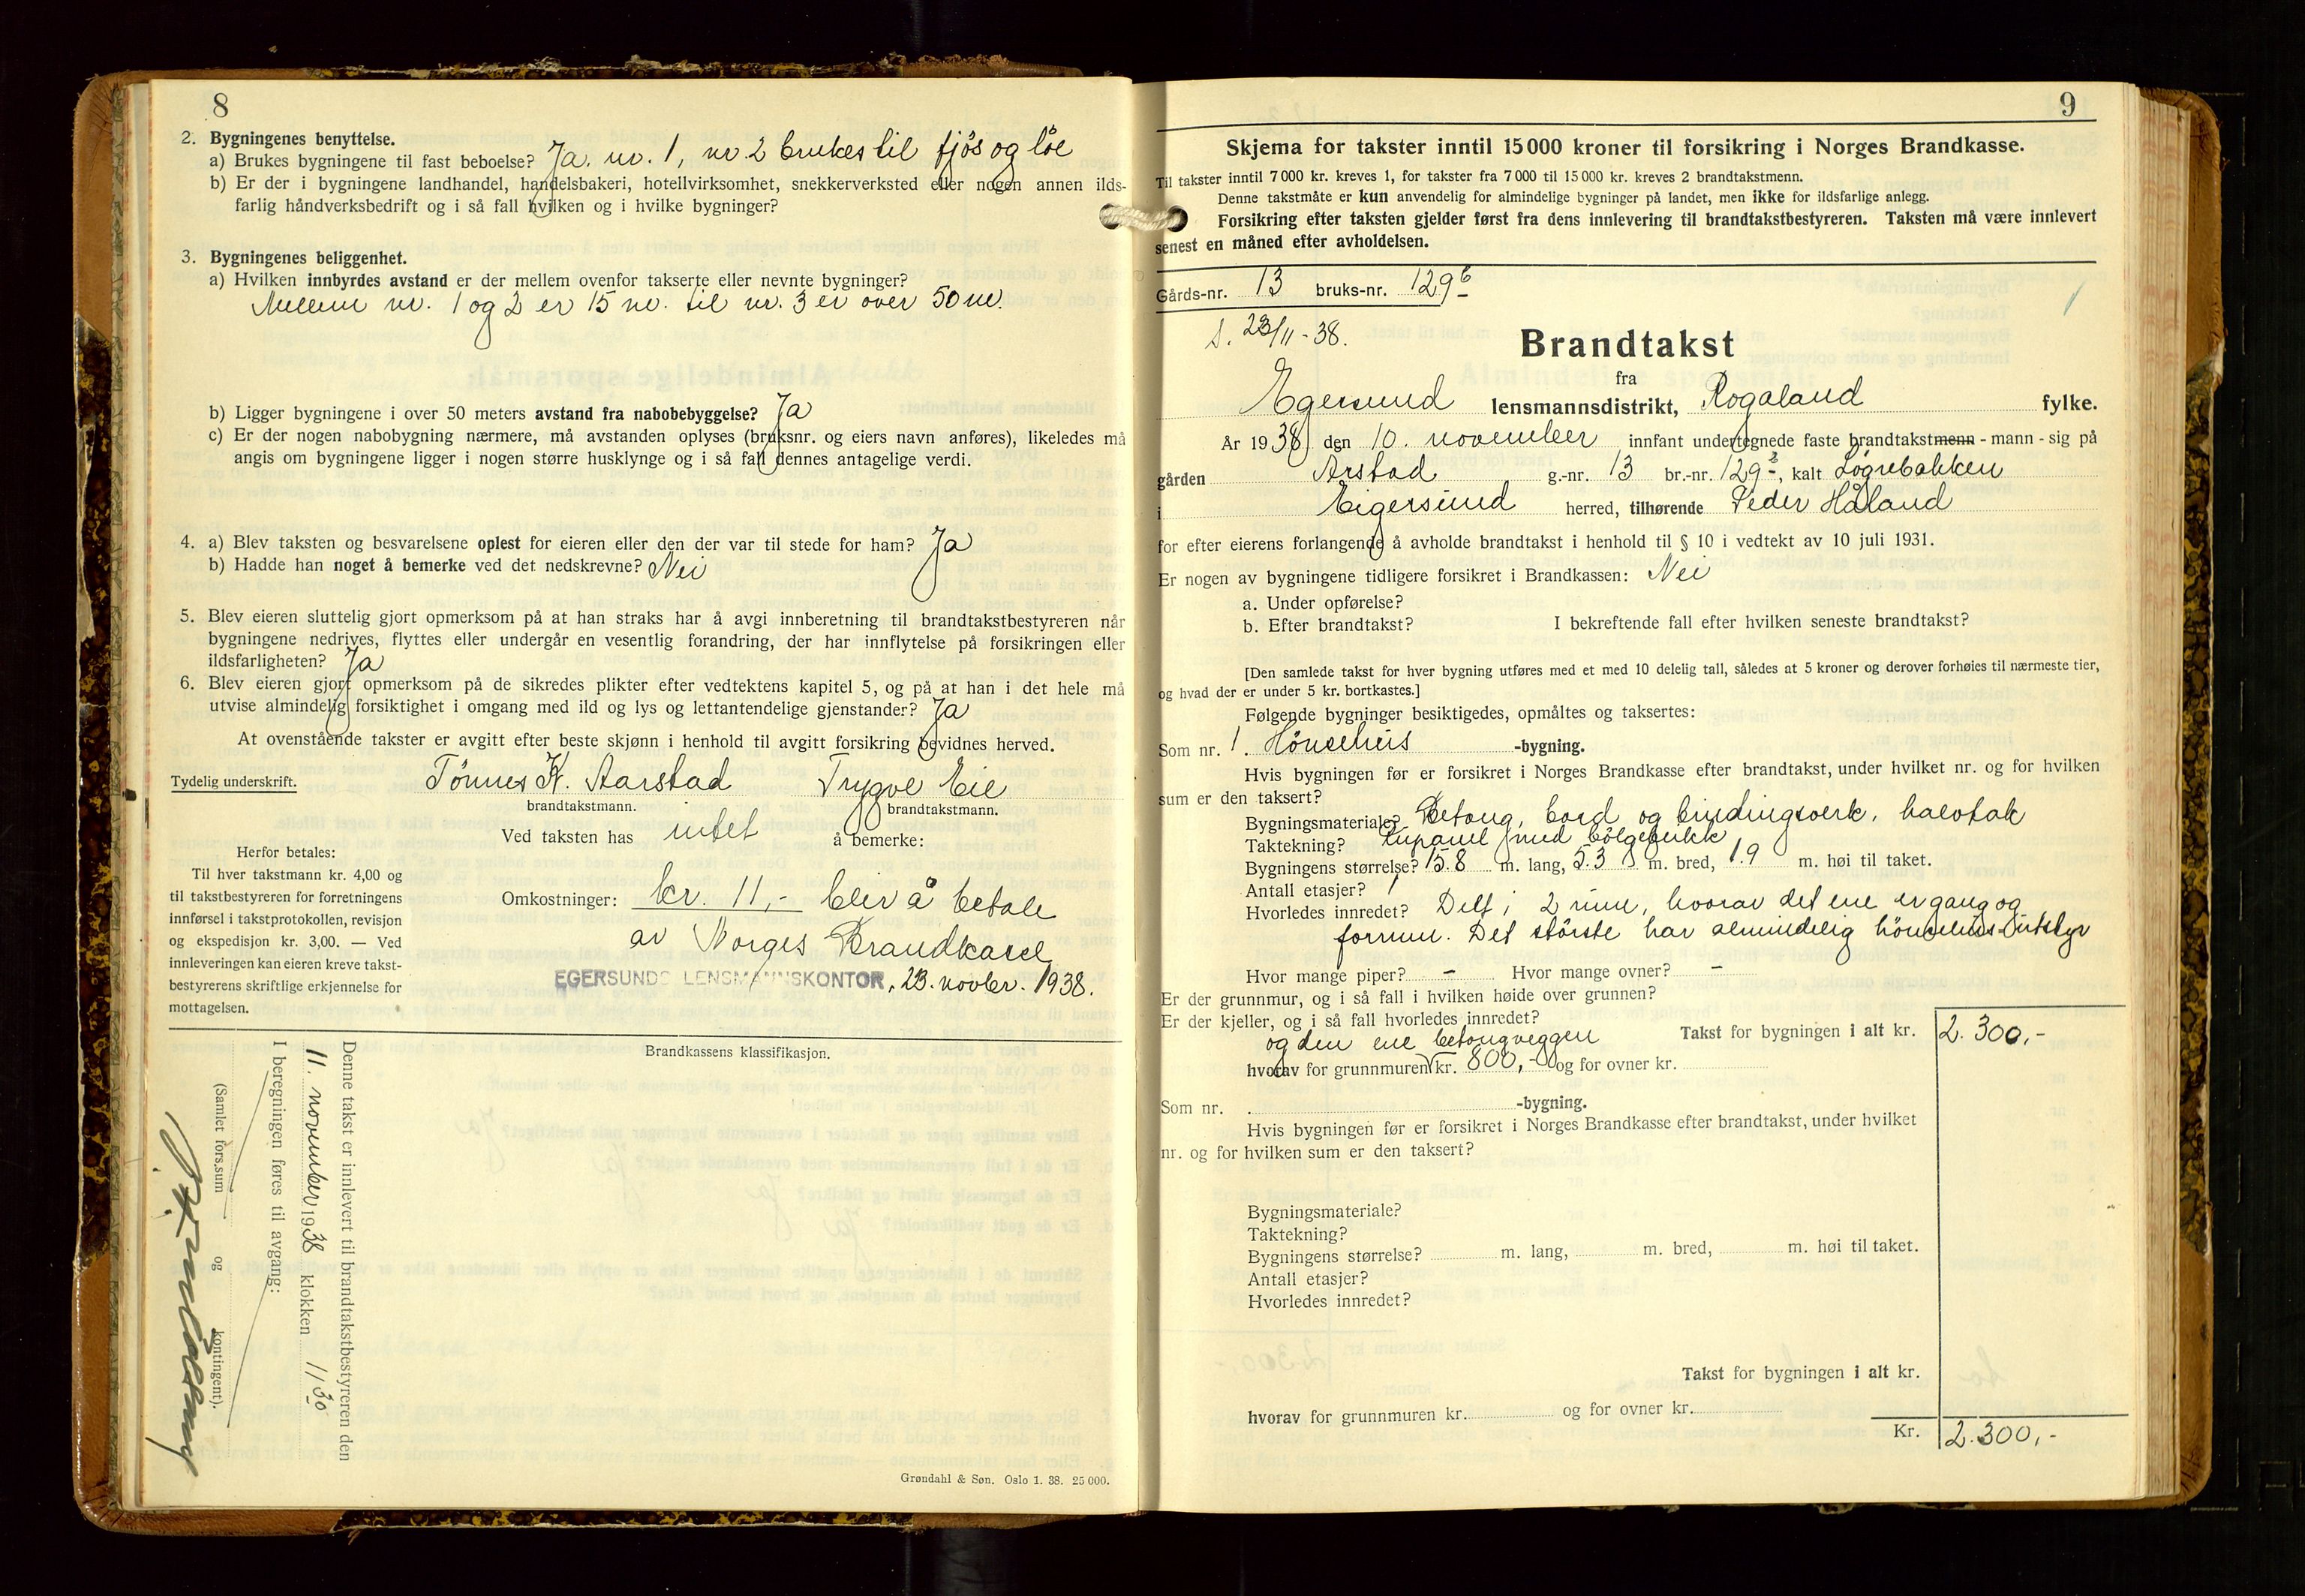 8
2. Bygningenes benyttelse.
a) Brukes bygningene til fast beboelse? Ja, nr. 1, nr 2 brukes til fjös og löe
b) Er der i bygningene landhandel, handelsbakeri, hotellvirksomhet, snekkerverksted eller nogen annen ilds-
farlig håndverksbedrift og i så fall hvilken og i hvilke bygninger?
3. Bygningenes beliggenhet.
a) Hvilken innbyrdes avstand er der mellem ovenfor takserte eller nevnte bygninger?
Mellem nr. 1 og 2 er 15 m. til nr. 3 er over 50 m.
b) Ligger bygningene i over 50 meters avstand fra nabobebyggelse? Ja
c) Er der nogen nabobygning nærmere, må avstanden oplyses (bruksnr. og eiers navn anføres), likeledes må
angis om bygningene ligger i nogen større husklynge og i så fall dennes antagelige verdi.
4. a) Blev taksten og besvarelsene oplest for eieren eller den der var til stede for ham? Ja
b) Hadde han noget å bemerke ved det nedskrevne? Nei
5. Blev eieren sluttelig gjort opmerksom på at han straks har å avgi innberetning til brandtakstbestyreren når
bygningene nedrives, flyttes eller undergår en vesentlig forandring, der har innflytelse på forsikringen eller
ildsfarligheten? Ja
6. Blev eieren gjort opmerksom på de sikredes plikter efter vedtektens kapitel 5, og på at han i det hele må
utvise almindelig forsiktighet i omgang med ild og lys og lettantendelige gjenstander? Ja
At ovenstående takster er avgitt efter beste skjønn i henhold til avgitt forsikring bevidnes herved.
Tydelig underskrift. Tönnes K. Aarstad Trygve Eie
brandtakstmann. brandtakstmann.
Ved taksten has intet å bemerke:
Herfor betales:
Til hver takstmann kr. 4,00 og
til takstbestyreren for forretningens
innførsel i takstprotokollen, revisjon
og ekspedisjon kr. 3,00. — Ved
innleveringen kan eieren kreve takst-
bestyrerens skriftlige erkjennelse for
mottagelsen.
Omkostninger: kr. 11,- blir å betale
av Norges Brandkasse
EGERSUNDS LENSMANNSKONTOR, 23. novbr. 1938.
Brandkassens klassifikasjon.
Denne takst er innlevert til brandtakstbestyreren den
11. november 1938 klokken 11 30
I beregningen føres til avgang:
(Samlet fors.sum og kontingent).
Grøndahl & Søn. Oslo 1. 38. 25 000.
9
Skjema for takster inntil 15 000 kroner til forsikring i Norges Brandkasse.
Til takster inntil 7 000 kr. kreves 1, for takster fra 7 000 til 15 000 kr. kreves 2 brandtakstmenn.
Denne takstmåte er kun anvendelig for almindelige bygninger på landet, men ikke for ildsfarlige anlegg.
Forsikring efter taksten gjelder først fra dens innlevering til brandtakstbestyreren. Taksten må være innlevert
senest en måned efter avholdelsen.
Gårds-nr. 13 bruks-nr. 129 b
23/11-38.
Brandtakst
fra
Egersund lensmannsdistrikt, Rogaland fylke.
År 1938 den 10. november innfant undertegnede faste brandtakstmenn - mann - sig på
gården Årstad g.-nr. 13 br.-nr. 129 b, kalt Løgrebakken
i Eigersund herred, tilhørende Peder Håland
for efter eierens forlangende å avholde brandtakst i henhold til § 10 i vedtekt av 10 juli 1931.
Er nogen av bygningene tidligere forsikret i Brandkassen: Nei
a. Under opførelse?
b. Efter brandtakst? I bekreftende fall efter hvilken seneste brandtakst?
[Den samlede takst for hver bygning utføres med et med 10 delelig tall, således at 5 kroner og derover forhøies til nærmeste tier,
og hvad der er under 5 kr. bortkastes.]
Følgende bygninger besiktigedes, opmåltes og taksertes:
Som nr. 1. Hönsehus -bygning.
Hvis bygningen før er forsikret i Norges Brandkasse efter brandtakst, under hvilket nr. og for hvilken
sum er den taksert?
Bygningsmateriale? Betong, bord og bindingsverk, halvtak
Taktekning? med bölgeblikk
Bygningens størrelse? 15.8 m. lang, 5.3 m. bred, 1.9 m. høi til taket.
Antall etasjer? 1
Hvorledes innredet? Delt i 2 rum, hvorav det ene er gang og
forrum. Det störste har almindelig hönsehus-utstyr
Hvor mange piper? - Hvor mange ovner? -
Er der grunnmur, og i så fall i hvilken høide over grunnen?
Er der kjeller, og i så fall hvorledes innredet?
Takst for bygningen i alt kr. 2.300,-
og den ene betongveggen
hvorav for grunnmuren kr. 800,- og for ovner kr.
Som nr. -bygning.
Hvis bygningen før er forsikret i Norges Brandkasse efter brandtakst, under hvilket
nr. og for hvilken sum er den taksert?
Bygningsmateriale?
Taktekning?
Bygningens størrelse? m. lang, m. bred, m. høi til taket.
Antall etasjer?
Hvorledes innredet?
Takst for bygningen i alt kr.
hvorav for grunnmuren kr. og for ovner kr.
Kr. 2.300,-